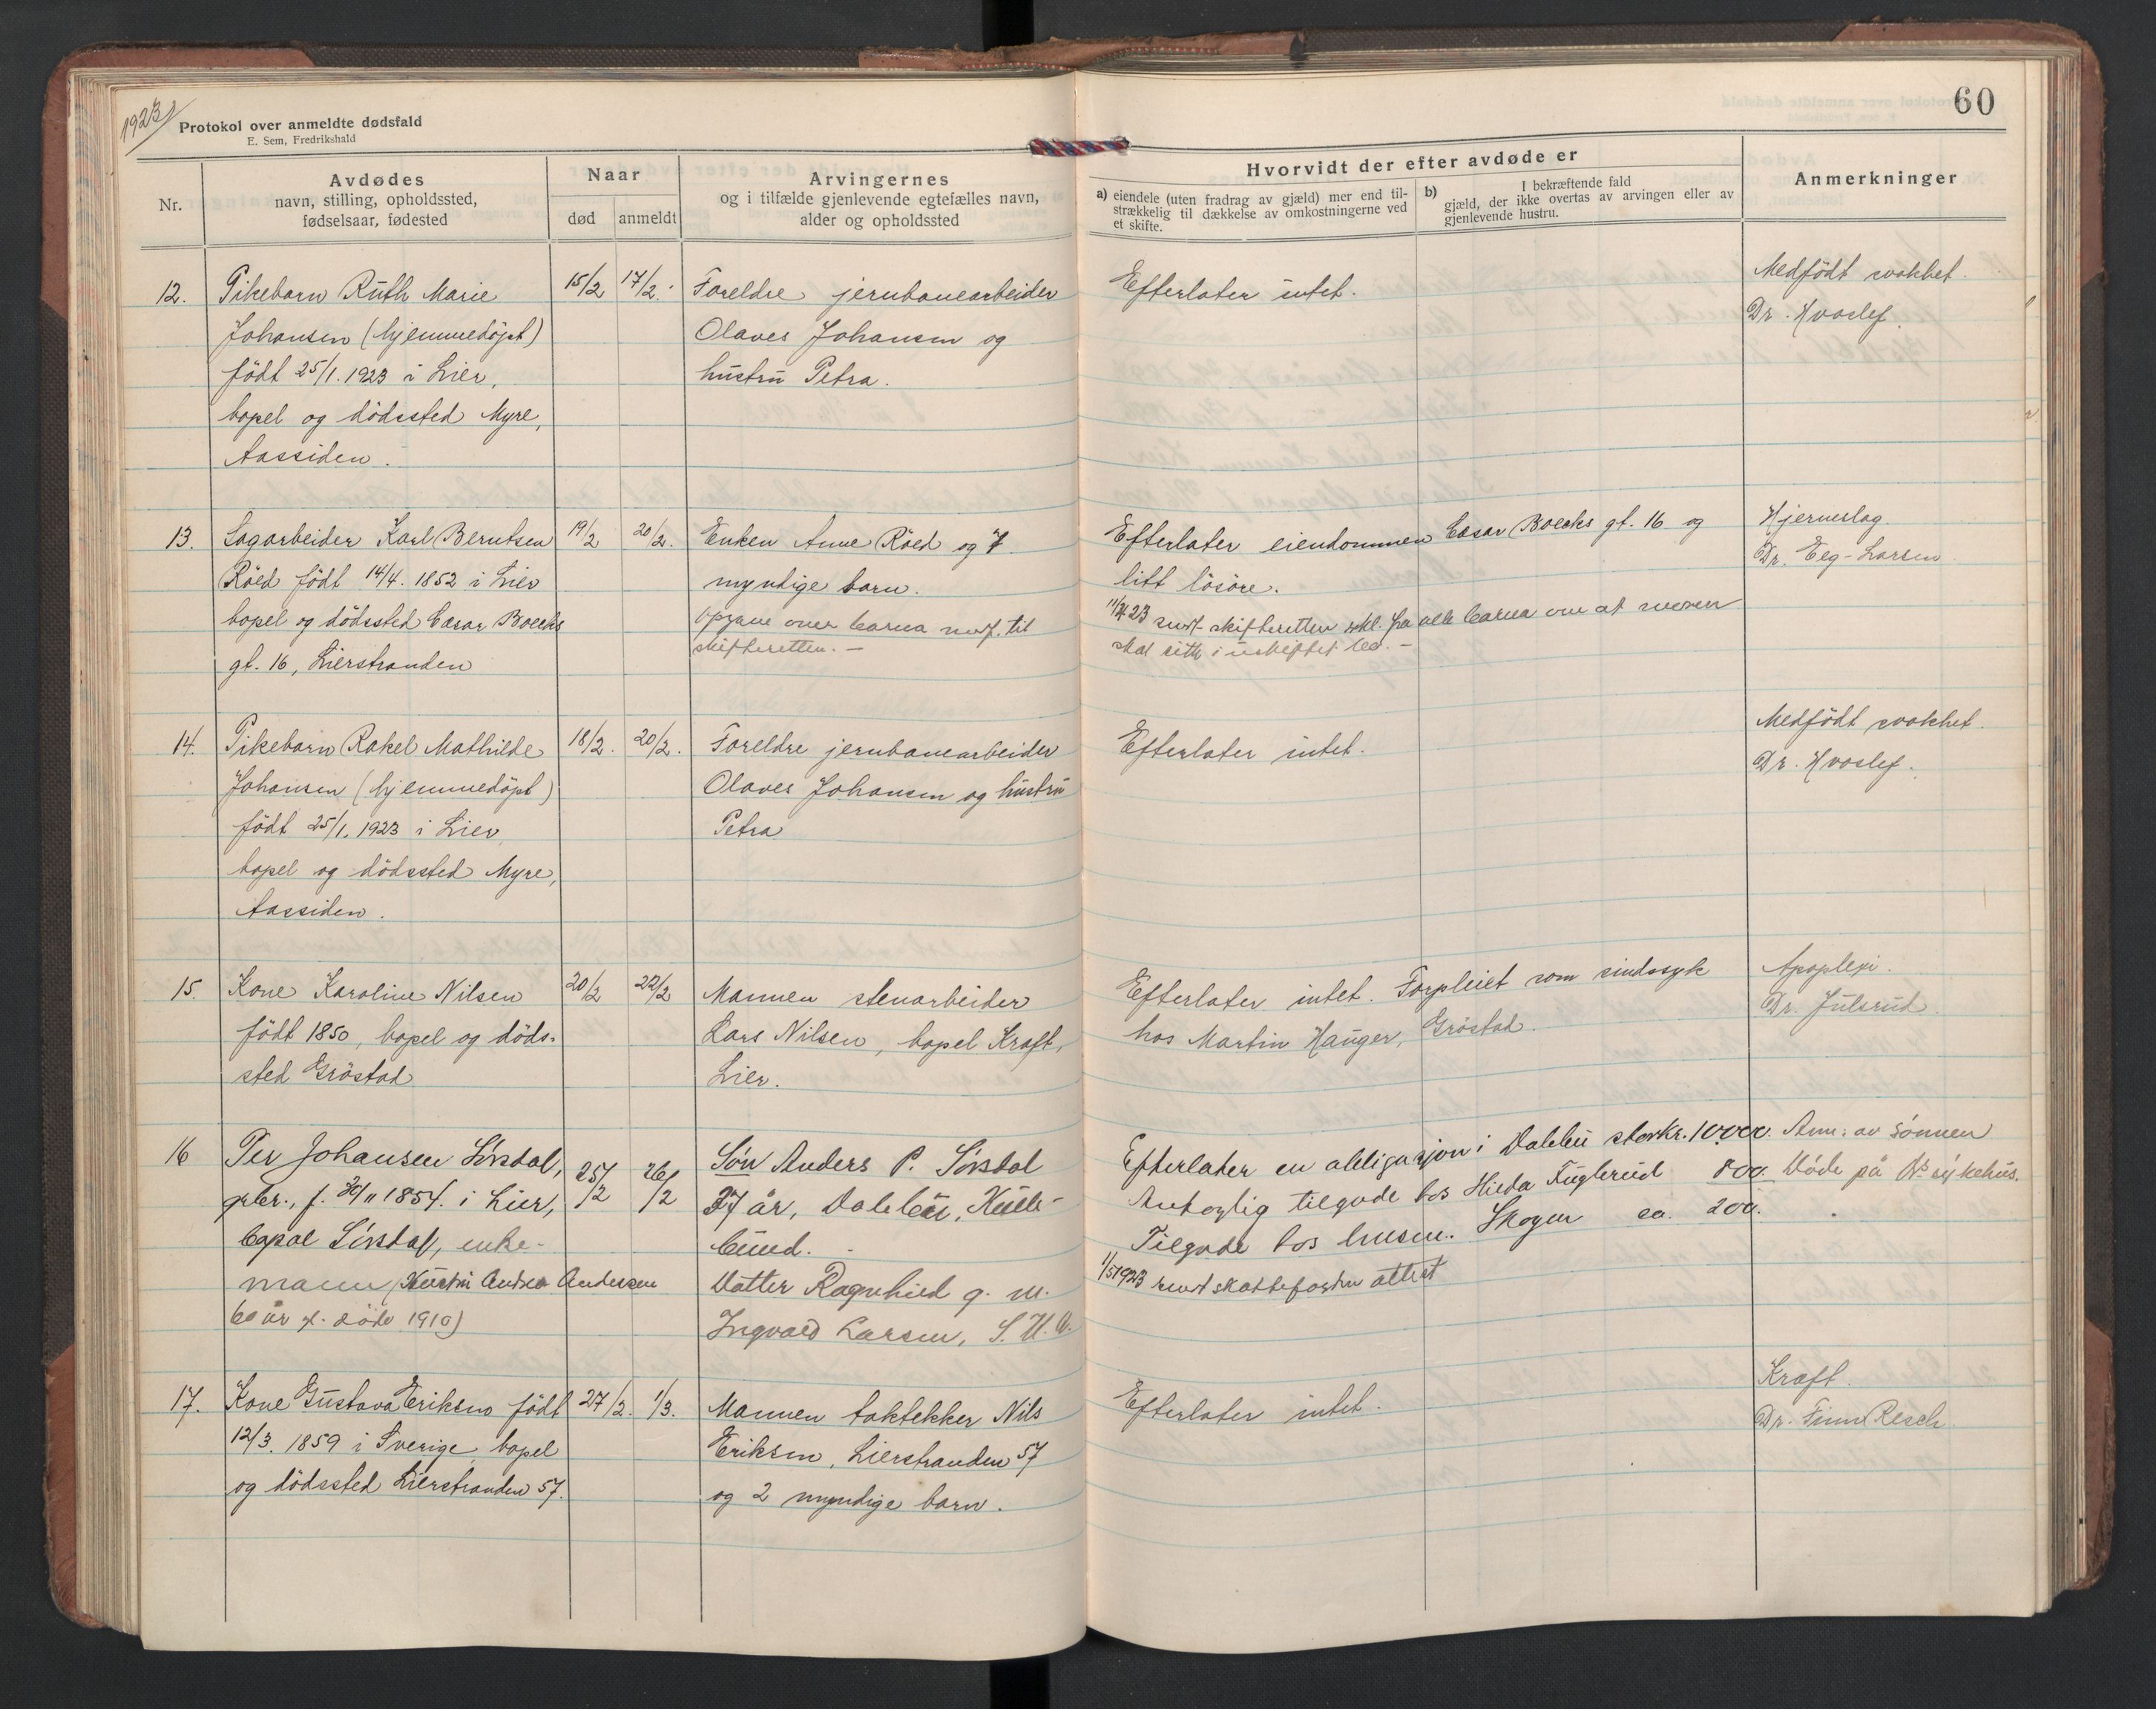 1923
Protokol over anmeldte dødsfald
E. Sem, Fredrikshald
60
Nr.
Avdødes
navn, stilling, opholdssted,
fødselsaar, fødested
Naar
død
anmeldt
Arvingernes
og i tilfælde gjenlevende egtefælles navn,
alder og opholdssted
Hvorvidt der efter avdøde er
a) eiendele (uten fradrag av gjæld) mer end til-
strækkelig til dækkelse av omkostningerne ved
et skifte.
b) I bekræftende fald
gjæld, der ikke overtas av arvingen eller av
gjenlevende hustru.
Anmerkninger
12. Pikebarn Ruth Marie
Johansen (hjemmedöpt)
födt 25/1. 1923 i Lier,
bopel og dödssted Myre,
Aassiden.
15/2 17/2.
Foreldre jernbanearbeider
Olaves Johansen og
hustru Petra.
Efterlater intet.
Medfödt svakhet.
Dr. Hvoslef.
13. Sagarbeider Karl Berntsen
Röed födt 14/4. 1852 i Lier
bopel og dödssted Cæsar Boecks
gt. 16, Lierstranden
19/2 20/2.
Enken Anne Röed og 7
myndige barn.
opgave over barna
skifteretten. —
Efterlater eiendommen Cæsar Boecks gt. 16 og
litt lösöre.
23 skifteretten fra alle barna om at moren
skal sitte i uskiftet bo. —
Hjerneslag.
Dr. Eeg-Larsen
14. Pikebarn Rakel Mathilde
Johansen (hjemmedöpt)
födt 25/1. 1923 i Lier,
bopel og dödssted Myre,
Aassiden.
18/2. 20/2.
Foreldre jernbanearbeider
Olaves Johansen og hustru
Petra
Efterlater intet.
Medfödt svakhet.
Dr. Hvoslef.
15. Kone Karoline Nilsen
födt 1850, bopel og döds-
sted Gröstad
20/2 22/2
Mannen stenarbeider
Lars Nilsen, bopel Kraft,
Lier.
Efterlater intet. Forpleiet som sindssyk
hos Martin Hauger, Gröstad.
Apoplexi.
Dr. Julsrud.
16 Per Johansen Sörsdal,
gbr., f. 30/11 1854. i Lier,
bopæl Sörsdal, enke-
mann (Hustru Andrea Andersen
60 år g. döde 1910)
25/2 26/2
Søn Anders P. Sörsdal
27 år, Dalebu,
Datter Ragnhild g. m.
Ingvald Larsen, S. U. A.
Efterlater en obligasjon i Dalebu stor kr. 10000.
Antagelig tilgode hos Hilda Fuglerud 800.
Tilgode hos husm. Skogen ca. 200.
1/5 1923 skattefostn attest
Anm. av sønnen
Døde på Ds sykehus.
17. Kone Gustava Eriksen födt
12/3. 1859 i Sverige, bopel
og dödssted Lierstranden 57.
27/2. 1/3.
Mannen taktekker Nils
Eriksen, Lierstranden 57
og 2 myndige barn.
Efterlater intet.
Kræft.
Dr. Finn Resch.